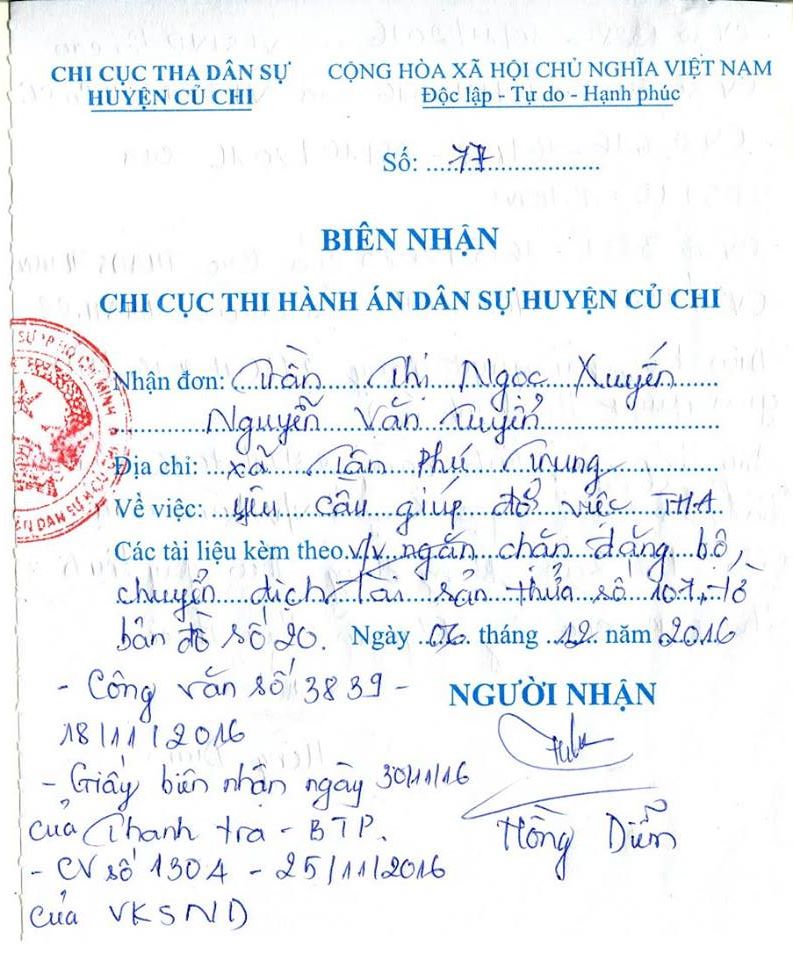 CHI CỤC THA DÂN SỰ
HUYỆN CỦ CHI
CỘNG HÒA XÃ HỘI CHỦ NGHĨA VIỆT NAM
Độc lập - Tự do - Hạnh phúc
Số: 77
BIÊN NHẬN
CHI CỤC THI HÀNH ÁN DÂN SỰ HUYỆN CỦ CHI
Nhận đơn: Trần Thị Ngọc Xuyến
Nguyễn Văn Tuyển
Địa chỉ: xã Tân Phú Trung
Về việc: yêu cầu giúp đỡ việc THA
Các tài liệu kèm theo v/v ngăn chặn đăng bộ,
chuyển dịch tài sản thửa số 107, tờ
bản đồ số 20. Ngày 06 tháng 12 năm 2016
- Công văn số 3839 -
18/11/2016
- Giấy biên nhận ngày 30/11/16
của Thanh tra - BTP.
- CV số 1304 - 25/11/2016
của VKSND
NGƯỜI NHẬN
Hồng Diễm